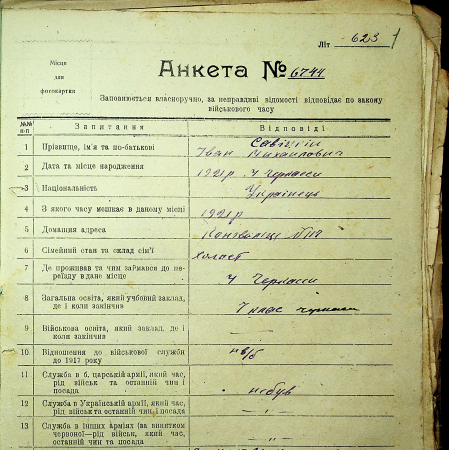 Літ 623 1
Місце
для
фотокартки
Анкета № 6744
Заповнюється власноручно, за неправдиві відомості відповідає по закону
військового часу
№№ п-п Запитання Відповіді
1 Прізвище, ім'я та по-батькові
Іван Михайлович
2 Дата та місце народження 1921р м Черкасси
3 Національність Українець
4 З якого часу мешкає в даному місці 1921р
5 Домашня адреса
6 Сімейний стан та склад сім'ї холост
7 Де проживав та чим займався до пе-
реїзду в дане місце м Черкасси
8 Загальна освіта, який учбовий заклад,
де і коли закінчив 7 клас
9 Військова освіта, який заклад, де і
коли закінчив —
10 Відношення до військової служби
до 1917 року
11 Служба в б. царській армії, який час,
рід військ та останній чин і
посада небув
12 Служба в Українській армії, який час,
рід військ та останній чин і посада — „ —
13 Служба в інших арміях (за винятком
червоної—рід військ, який час,
останній чин та посада — „ —